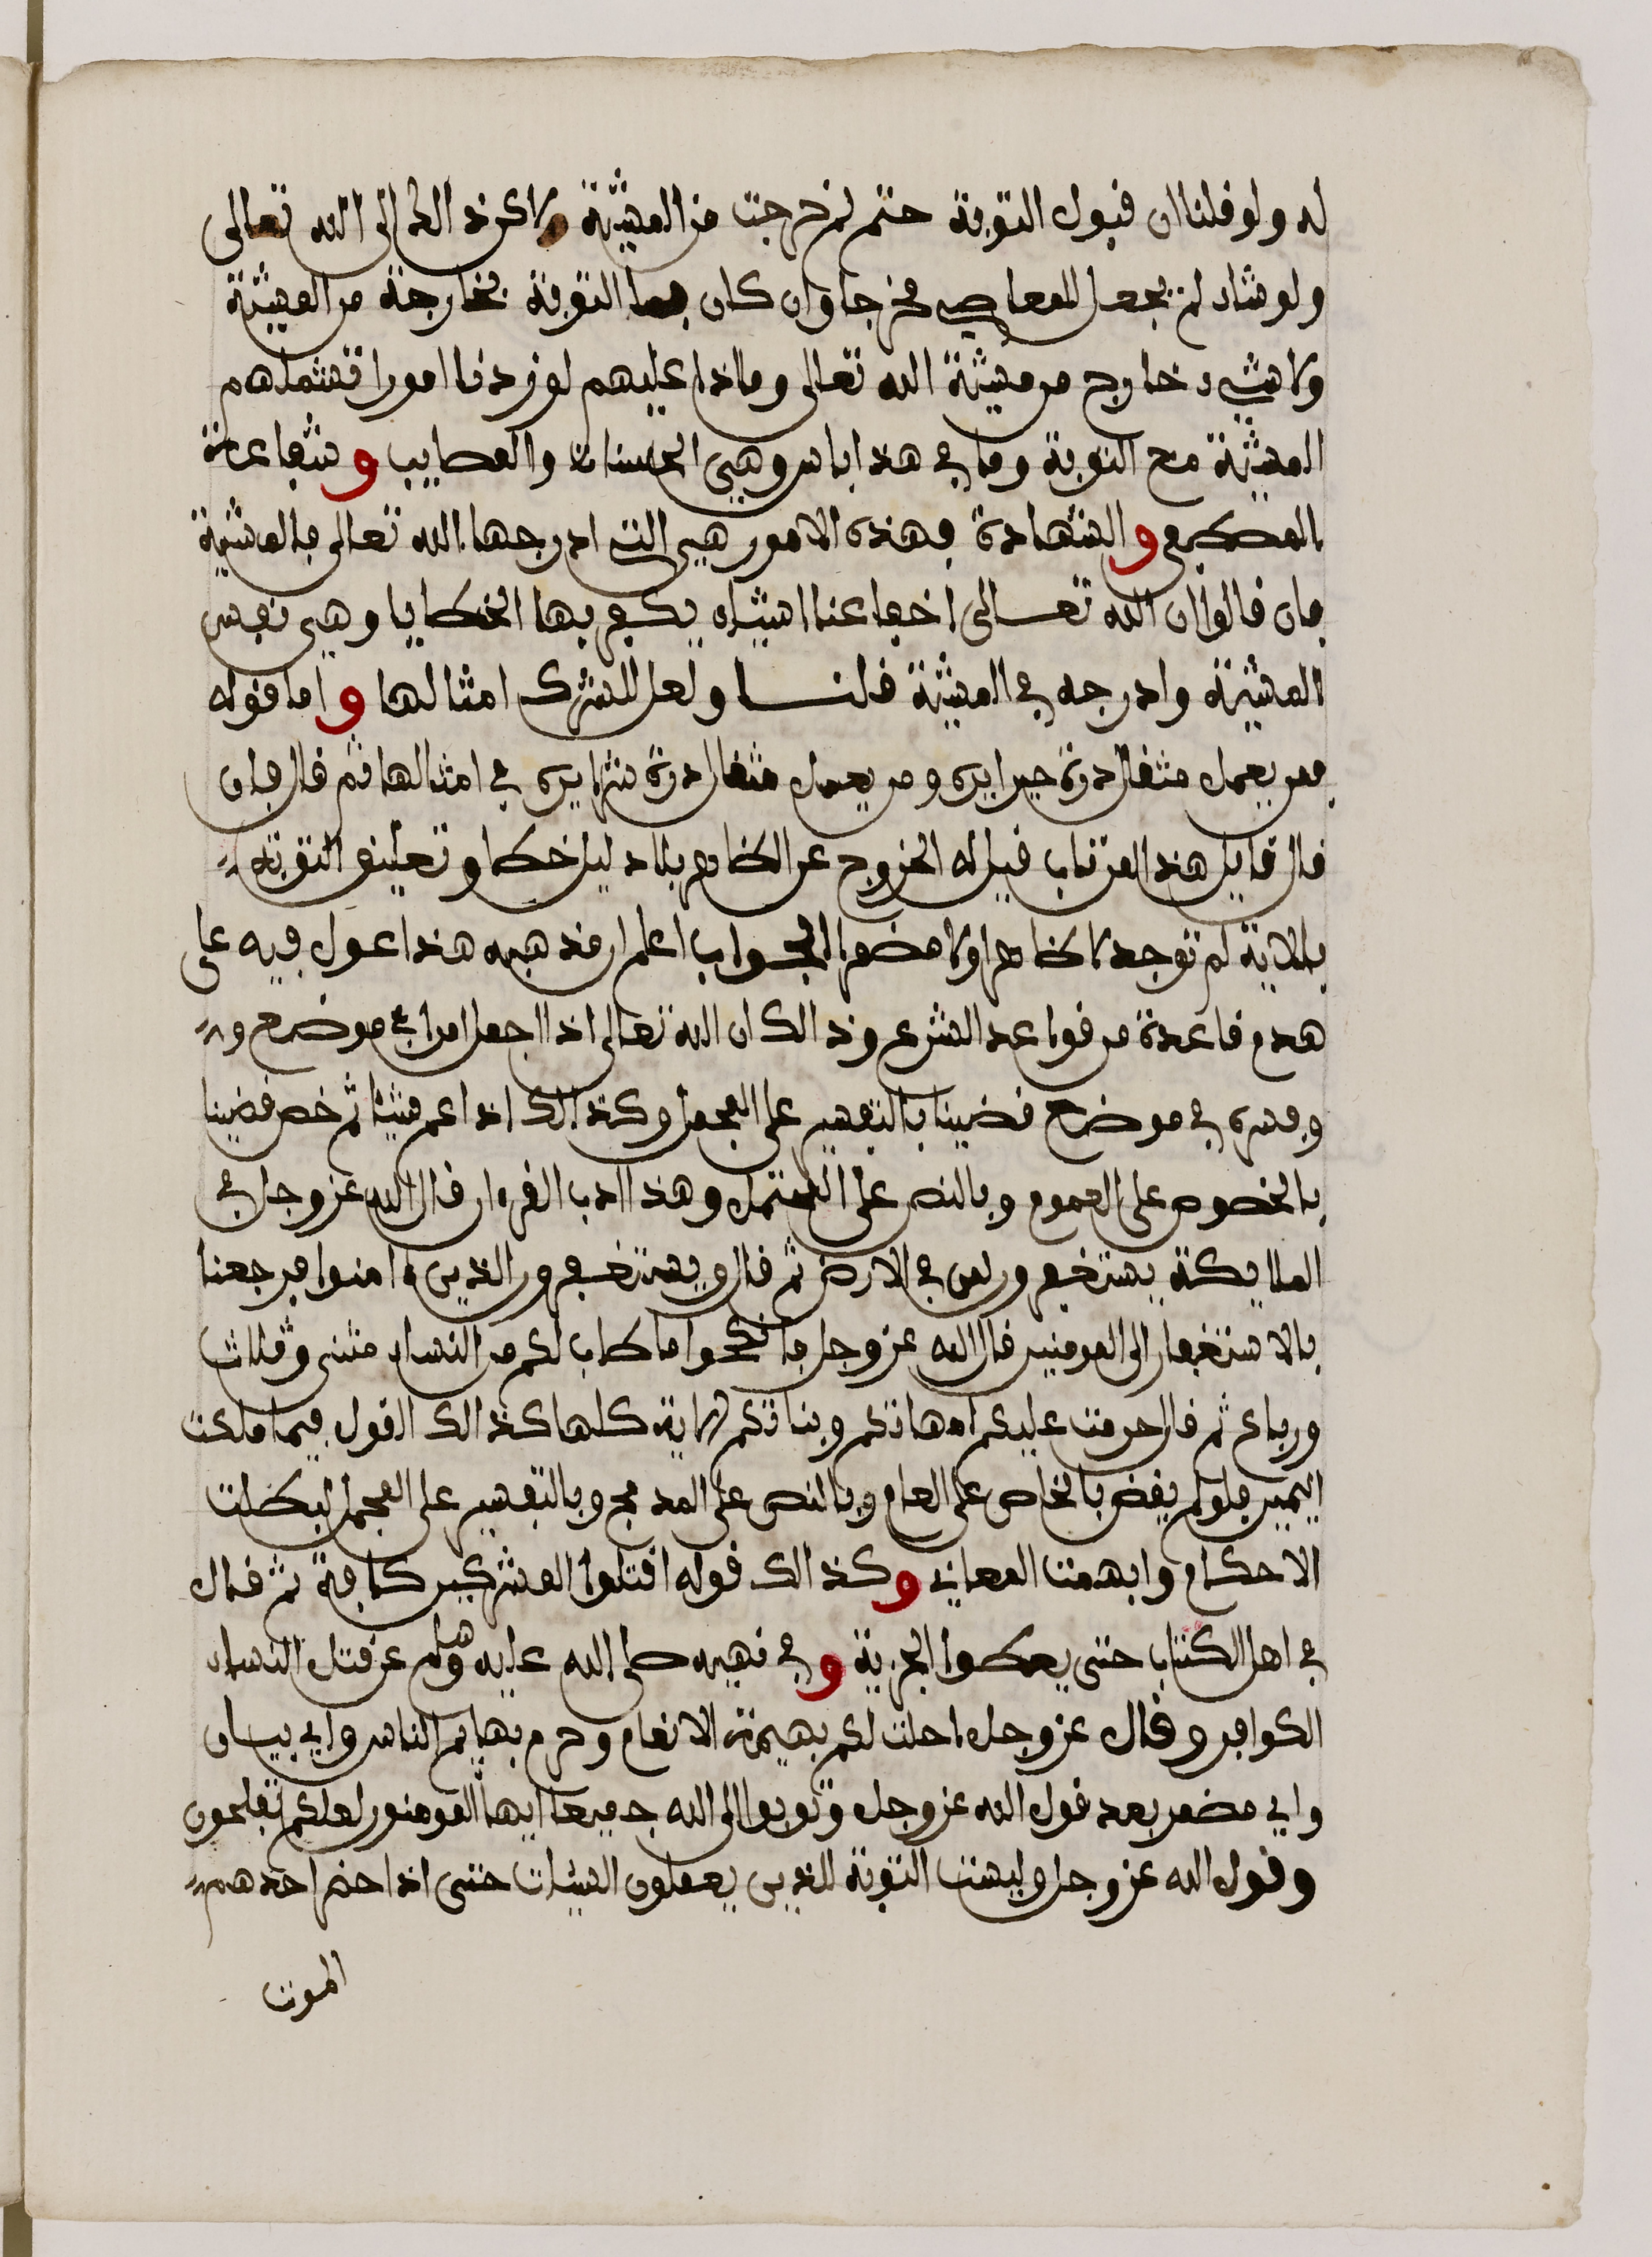 له ولو قلنا ان قبول التوبة حتم لخرجت من المشيئة ولاكن ذالك الى الله تعالى
ولو شاء لم يجعل للمعاصي مخرجا وان كان فما التوبة بخارجة من المشيئة
ولا شيء خارج من مشيئة الله تعالى وماذا عليهم لو زدنا امورا تشملهم
المشيئة مع التوبة وما في هذا باس وهي الحسنات والمصايب وشفاعة
المصطفى والشهادة فهذه الامور هي التي ادرجها الله تعالى بالمشيئة
فان قالوا ان الله تعالى اخفا عنا اشياء يكفر بها الخطايا وهي نفس
المشيئة وادرجه في المشيئة قلنا ولعل للشرك امثالها واما قوله
فمن يعمل مثقال ذرة خيرا يره ومن يعمل مثقال ذرة شرا يره في امثالها ثم قال فان
قال قايل هذا لمن تاب قيل له الخروج عن الظاهر بلا دليل خطا وتعليق التوبة
بالاية لم توجد لا ظاهرا ولا مضمرا الجواب اعلم ان مذهبه هذا عول فيه على
هدم قاعدة من قواعد الشرع وذالك ان الله تعالى اذا اجمل امرا في موضع
وفسره في موضع قضينا بالتفسير على المجمل وكذالك اذا عم شيئا ثم خص قضينا
بالخصوص على العموم وبالنص على المحتمل وهذا ادب القرءان قال الله عز وجل في
الملايكة يستغفرون لمن في الارض ثم قال ويستغفرون للذين ءامنوا فرجعنا
بالاستغفار الى المومنين قال الله عز وجل فانكحوا ما طاب لكم من النساء مثنى وثلاث
ورباع ثم قال حرمت عليكم امهاتكم وبناتكم الاية كلها كذالك القول فيما ملكت
اليمين فلو لم يقض بالخاص على العام وبالنص على المدمج وبالتفسير على المجمل لبطلت
الاحكام وابهمت المعاني وكذالك قوله اقتلوا المشركين كافة ثم قال
في اهل الكتاب حتى يعطوا الجزية وفي نهيه صلى الله عليه وسلم عن قتل النساء
الكوافر وقال عز وجل احلت لكم بهيمة الانعام وحرم بهايم الناس واي بيان
واي مضمر بعد قول الله عز وجل وتوبوا الى الله جميعا ايها المومنون لعلكم تفلحون
وقول الله عز وجل وليست التوبة للذين يعملون السيئات حتى اذا حضر احدهم
الموت